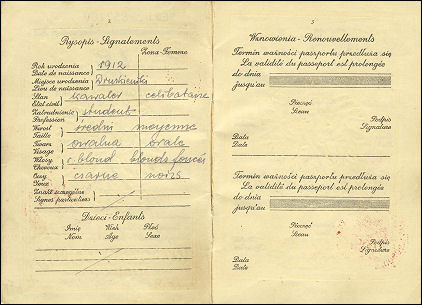 2
Rysopis - Signalements
Żona - Femme
Rok urodzenia 1912
Date de naissance
Miejsce urodzenia Druskieniki
Lieu de naissance
Stan kawaler célibataire
Etat civil
Zatrudnienie student
Profession
Wzrost średni moyenne
Taille
Twarz owalna ovale
Visage
Włosy c. blond blonds foncés
Cheveux
Oczy czarne noirs
Yeux
Znaki szczególne
Signes particuliers
Dzieci - Enfants
Imię Wiek Płeć
Nom Age Sexe
3
Wznowienia - Renouvellements
Termin ważności paszportu przedłuża się
La validité du passeport est prolongée
do dnia
jusqu'au
Pieczęć
Sceau
Podpis
Signature
Data
Date
Termin ważności paszportu przedłuża się
La validité du passeport est prolongée
do dnia
jusqu'au
Pieczęć
Sceau
Podpis
Signature
Data
Date